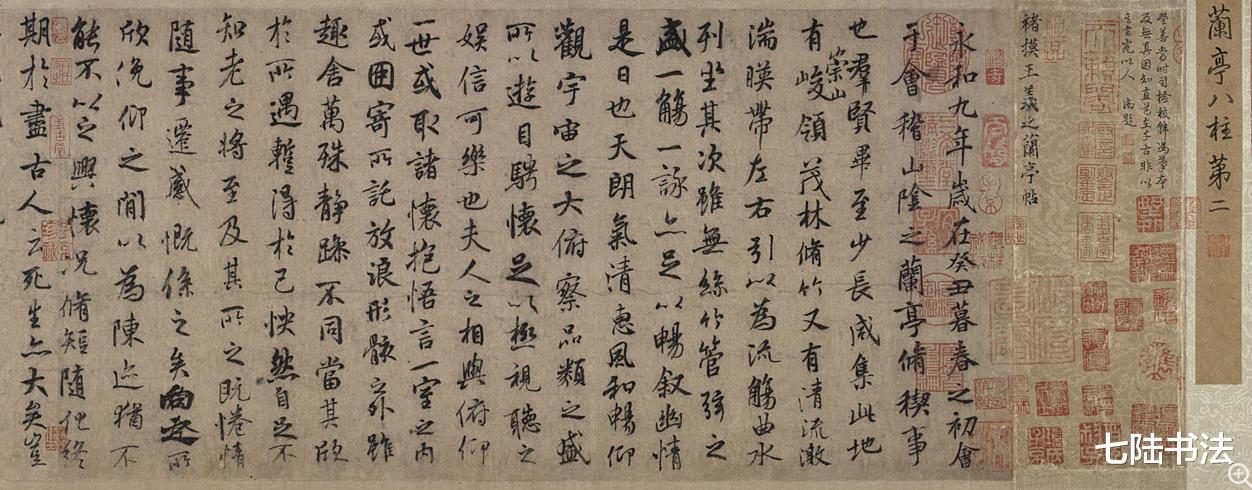 蘭亭八柱第二
褚摸王羲之蘭亭帖
永和九年歲在癸丑暮春之初會
于會稽山陰之蘭亭脩稧事
也羣賢畢至少長咸集此地
有崇山峻領茂林脩竹又有清流激
湍暎帶左右引以為流觴曲水
列坐其次雖無絲竹管弦之
盛一觴一詠亦足以暢叙幽情
是日也天朗氣清惠風和暢仰
觀宇宙之大俯察品類之盛
所以遊目騁懷足以極視聽之
娛信可樂也夫人之相與俯仰
一世或取諸懷抱悟言一室之內
或因寄所託放浪形骸之外雖
趣舍萬殊靜躁不同當其欣
於所遇蹔得於己怏然自足不
知老之將至及其所之既惓情
隨事遷感慨係之矣向之所
欣俛仰之閒以為陳迹猶不
能不以之興懷況脩短隨化終
期於盡古人云死生亦大矣豈
七陆书法